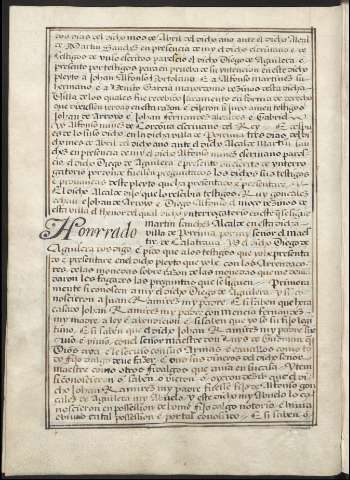 dos dias del dicho mes de Abril del dicho año ante el dicho Alcal
de Martin Sanchez en presencia de my el dicho escriuano e de
testigos de yuso escritos parescio el dicho Diego de Aguilera e
presento por testigos para en prueba de su yntencion en este dicho
pleyto a Johan Alfonso Hortolano E a Alfonso martinez su
hermano e a Benito Garcia mayordomo vezinos desta dicha
Villa de los quales fue recebido Juramento en forma de derecho
que dixessen verdad en esta razon e dixeron si juro amen testigos
Johan de Arroyo e Johan fernandez alcaldes e Gabriel
yo Alfonso nuñez de Cordova escriuano del Rey E despu
es de lo suso dicho en la dicha villa de Porcuna
mes de Abril del dicho año ante el dicho Alcalde Martin San
chez en presencia de my el dicho Alfonso nunez escriuano pares
cio el dicho Diego de Aguilera e presento escrito de ynterro
gatorio por do se fuessen preguntados los dichos sus testigos
e provanças deste pleyto que ha presentado e presentare
El dicho Alcalde dixo que lo rescibia testigos Ruy gonzalez
e Johan de Arroyo e Diego Alfonso el moço vezinos de
esta villa el thenor del qual dicho ynterrogatorio es este que se sigue
Honrrado martin sanchez Alcalde en esta dicha
villa de Porcuna por my señor el maes
tre de Calatrava Yo el dicho Diego de
Aguilera vos digo e pido que a los testigos que yo presenta
do e presentare en el dicho pleyto que yo he con los Arrendado
res de las monedas sobre razon de las monedas que me deman
daron les fagades las preguntas que se siguen Primera
mente si conoscen a my el dicho Diego de Aguilera y si co
noscieron a Juan Ramirez my padre E si saben que hera
casado Johan Ramirez my padre con Mencia fernandez
my madre a ley e bendicion e si saben que yo so su fijo legi
timo E si saben que el dicho Johan Ramirez my padre bi
vio e vivia con el señor maestre don Luys de Guzman que
Dios aya e le servio con sus Armas e cavallos como
fijo dalgo deve fazer e ovo sus dineros del dicho señor
maestre como otros fidalgos que avia en su casa Yten
si conoscieron o saben o vieron o oyeron dezir que el di
cho Johan Ramirez my padre fuesse fijo de Alfonso gon
çalez de Aguilera my Abuelo y este dicho my Abuelo lo co
noscieron en possession de home fijo dalgo notorio e biviar
e bivio en tal possession e por tal conoscido E si saben o